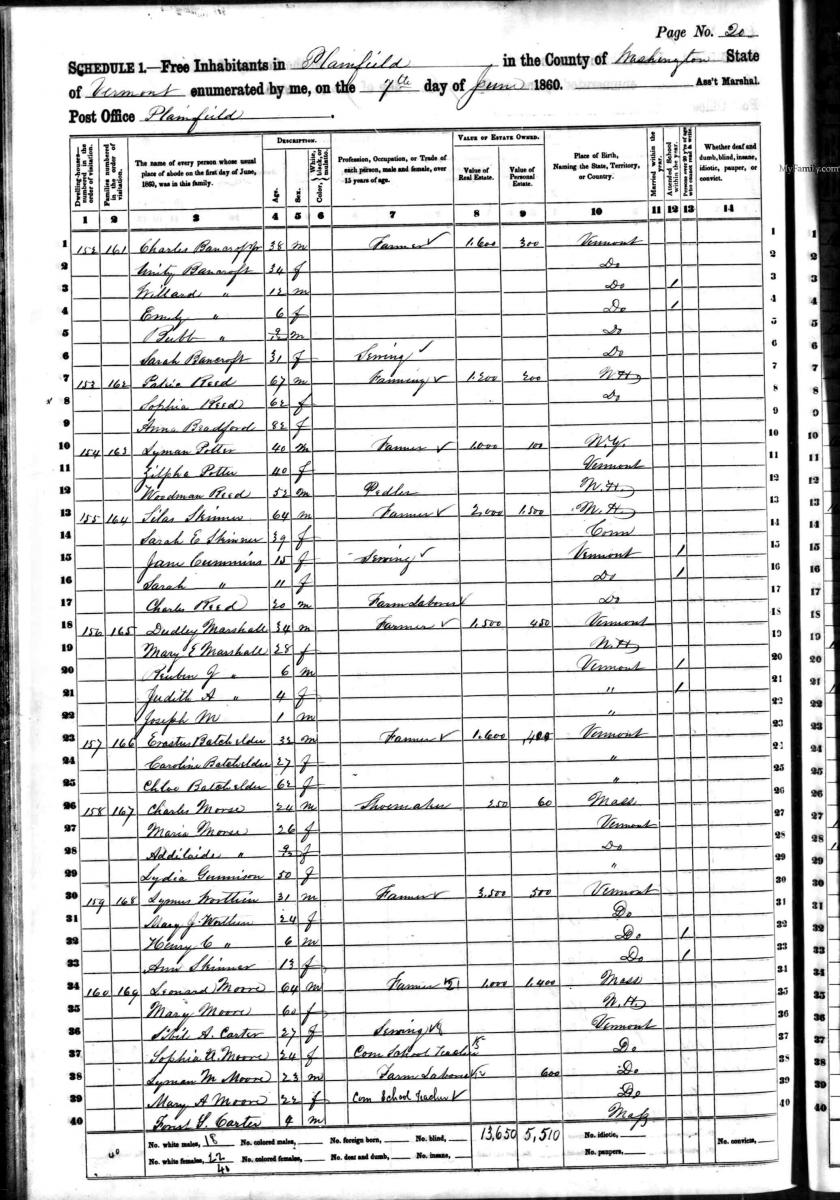 Page No. 20
SCHEDULE 1.—Free Inhabitants in Plainfield in the County of Washington State
of Vermont enumerated by me, on the 7th day of June 1860. Ass't Marshal.
Post Office Plainfield
Dwelling-houses numbered in the order of visitation. Families numbered in the order of visitation. The name of every person whose usual place of abode on the first day of June, 1860, was in this family. DESCRIPTION. Age. Sex. Color, White, black, or mulatto. Profession, Occupation, or Trade of each person, male and female, over 15 years of age. VALUE OF ESTATE OWNED. Value of Real Estate. Value of Personal Estate. Place of Birth, Naming the State, Territory, or Country. Married within the year. Attended School within the year. Persons over 20 y'rs of age who cannot read & write. Whether deaf and dumb, blind, insane, idiotic, pauper, or convict.
MyFamily.com
1 2 3 4 5 6 7 8 9 10 11 12 13 14
1 152 161 Charles Bancroft 38 m Farmer 1.600 300 Vermont 1
2 Unity Bancroft 34 f Do 2
3 Willard " 12 m Do 1 3
4 Emily " 6 f Do 1 4
5 Bubb " 9/12 m Do 5
6 Sarah Bancroft 31 f Sewing Do 6
7 153 162 Reed 67 m Farming 1.200 200 N.H 7
8 Sophia Reed 62 f Do 8
9 Anna Bradford 82 f 9
10 154 163 Lyman Potter 40 m Farmer 1.000 100 N.Y. 10
11 Zilpha Potter 40 f Vermont 11
12 Woodman Reed 52 m Pedler N.H 12
13 155 164 Silas Skinner 64 m Farmer 2.000 1.500 N.H 13
14 Sarah E Skinner 39 f Conn 14
15 Jane Cummins 15 f Sewing Vermont 1 15
16 Sarah " 11 f Do 1 16
17 Charles Reed 20 m Farm Laborer Do 17
18 156 165 Dudley Marshall 34 m Farmer 1.500 450 Vermont 18
19 Mary E Marshall 28 f N.H 19
20 Reuben J " 6 m Vermont 1 20
21 Judith A " 4 f " 1 21
22 Joseph M 1 m " 22
23 157 166 Erastus Batchelder 32 m Farmer 1.600 400 Vermont 23
24 Caroline Batchelder 27 f " 24
25 Chloe Batchelder 62 f " 25
26 158 167 Charles Morse 24 m Shoemaker 250 60 Mass 26
27 Maria Morse 26 f Vermont 27
28 Addilaide " 9/12 f Do 28
29 Lydia Gunnison 50 f " 29
30 159 168 Lyman Worthen 31 m Farmer 3.500 500 Vermont 30
31 Mary J Worthen 24 f Do 31
32 Henry C " 6 m Do 1 32
33 Ann Skinner 13 f Do 1 33
34 160 169 Leonard Moore 64 m Farmer 1.000 1.400 Mass 34
35 Mary Moore 60 f N.H 35
36 Sibil A. Carter 27 f Sewing Vermont 36
37 Sophia Moore 24 f Com School Teacher Do 37
38 Lyman M Moore 23 m Farm Laborer 600 Do 38
39 Mary A Moore 22 f Com School Teacher Do 39
40 S. Carter 4 m Mass 40
40 No. white males, 18 No. colored males, No. foreign born, No. blind, 13,650 5,510 No. idiotic, No. convicts,
No. white females, 22 No. colored females, No. deaf and dumb, No. insane, No. paupers,
40